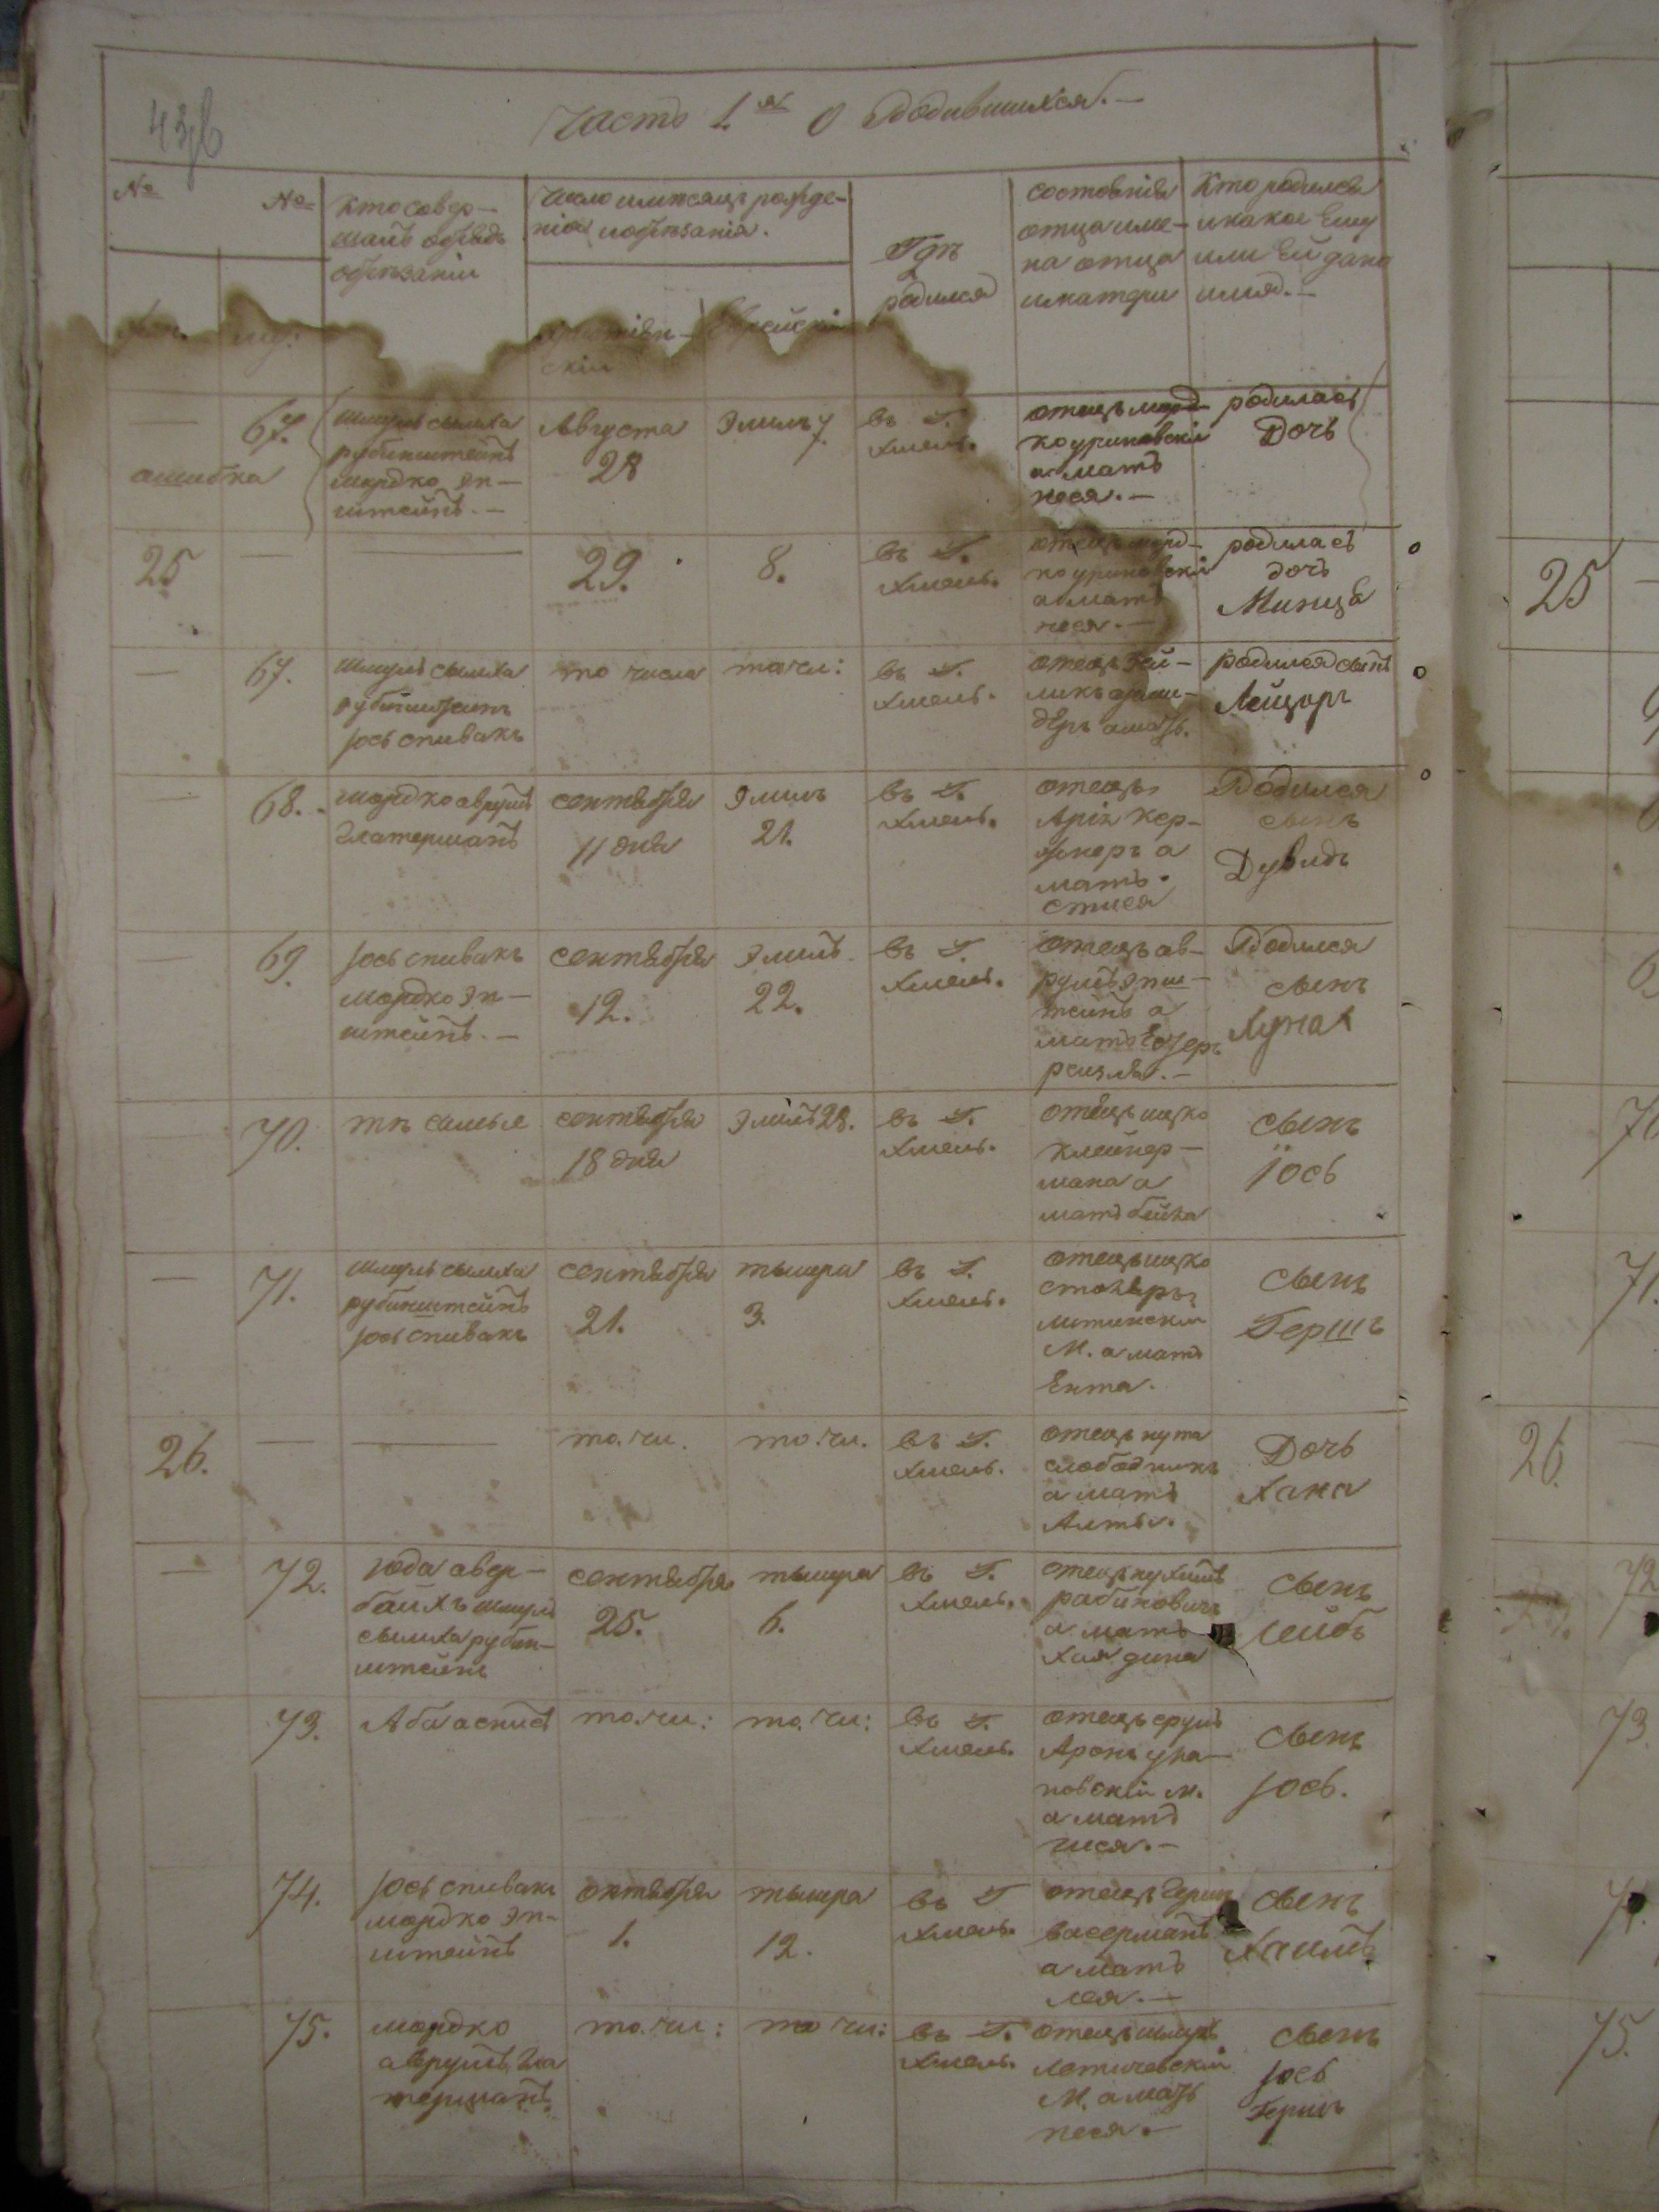 43об
Часть 1я о Родившихся.—
№ №
Кто совер-
шалъ обрядъ
обрезанiи
Число имесяцъ рожде-
нiя иобрезанiя.
Где
родился
состоянiя
отца име-
на отца
иматери
Кто родился
икакое Ему
или Ей дано
имя.—
жен. муж:
христiян-
скiи
Еврейскiи
— 67.
ошибка
шмуль сымха
рубинштейнъ
мордко эп-
штейнъ.—
Августа
28
Элилъ 7.
въ Г.
Хмель.
отецъ морд-
ко
а мать
песя.—
родилась
Дочь
25 — —
29.
8.
въ Г.
Хмель.
отецъ морд-
ко
а мать
песя.—
родилась
дочь
Минця
— 67.
шмуль сымха
рубинштейнъ
Iось спивакъ
то число
то чи:
въ Г.
Хмель.
отецъ
а мать.
родился сынъ
Лейзоръ
— 68.
мордко аврумъ
Глатерманъ
сентября
11 дня
Элилъ
21.
въ Г.
Хмель.
отецъ
Арiя Кер-
а
мать
стися
Родился
сынъ
Дувидъ
— 69.
Iось спивакъ
мордко эп-
штейнъ.—
сентября
12.
Элилъ
22.
въ Г.
Хмель.
отецъ ав-
румъ эпш-
тейнъ а
мать Естеръ
рейзля.—
Родился
сынъ
70.
те самые
сентября
18 дня
Элилъ 28.
въ Г.
Хмель.
отецъ ицко
Клейнер-
мана а
мать бейла
сынъ
Iось
— 71.
шмуль сымха
рубинштейнъ
Iось спивакъ
сентября
21.
тышри
3.
въ Г.
Хмель.
отецъ ицко
столяръ
литинскiи
М. а мать
Ента.
сынъ
Гершъ
26. — —
то. чи.
то. чи.
въ Г.
Хмель.
отецъ нута
слободникъ
а мать
Алты.
Дочь
Хана
— 72.
Iода авер-
байхъ шмуль
сымха рубин-
штейнъ
сентября
25.
тышри
6.
въ Г.
Хмель.
отецъ нухимъ
рабиновичъ
а мать
Хая дина
сынъ
лейбъ
73.
Аба аспись
то. чи:
то. чи:
въ Г.
Хмель.
отецъ срулъ
Аронъ ула-
новскiи М.
а мать
гися.—
сынъ
Iось.
74.
Iось спивакъ
мордко эп-
штейнъ
октября
1.
тышри
12.
въ Г.
Хмель.
отецъ Гершъ
васерманъ
а мать
лея.—
сынъ
Хаимъ
75.
мордко
аврумъ Гла
терманъ
то. чи:
то чи:
въ Г.
Хмель.
отецъ шмуль
Летичевскiи
М. а мать
песя.—
сынъ
Iось
Гершъ
25
70
71.
26.
72
73
75.